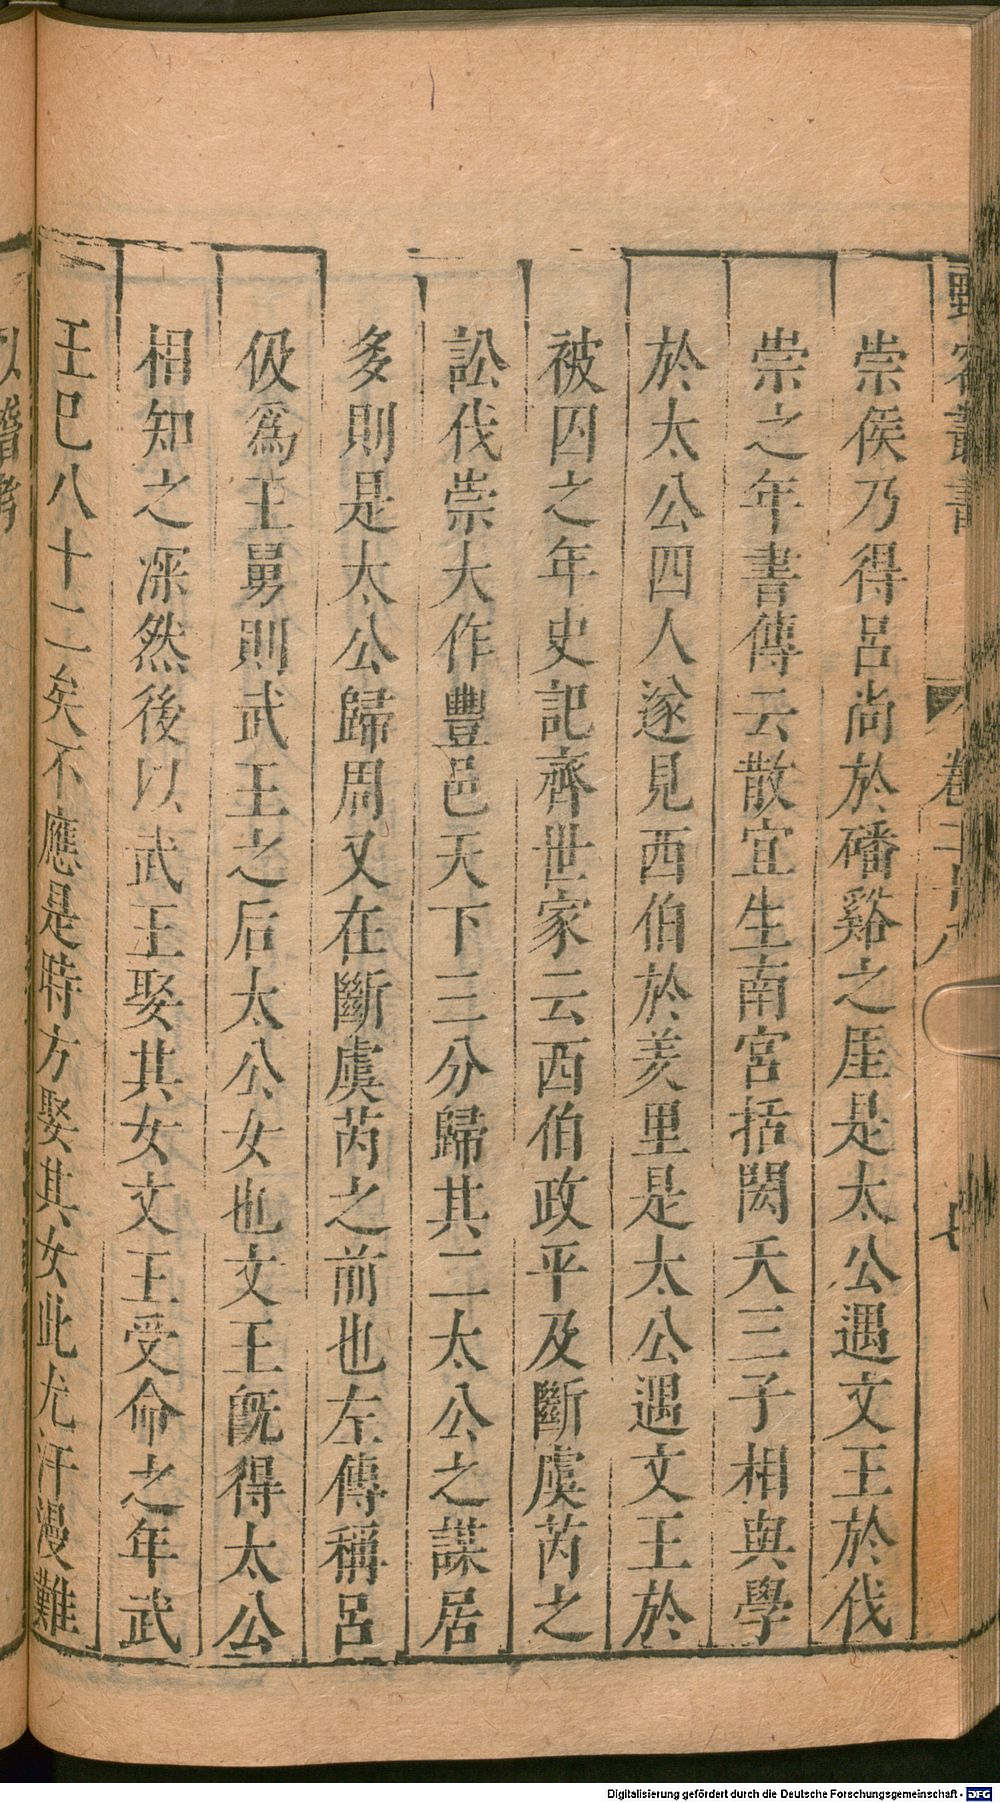 野客叢書
卷二十八
七
崇侯乃得呂尚於磻谿之厓是太公遇文王於伐
崇之年書傳云散宜生南宮括閎夭三子相與學
於太公四人遂見西伯於羑里是太公遇文王於
被囚之年史記齊世家云西伯政平及斷虞芮之
訟伐崇大作豐邑天下三分歸其二太公之謀居
多則是太公歸周又在斷虞芮之前也左傳稱呂
伋爲王舅則武王之后太公女也文王旣得太公
相知之深然後以武王娶其女文王受命之年武
王巳八十二矣不應是時方娶其女此尤汗漫難
以稽考
Digitalisierung gefördert durch die Deutsche Forschungsgemeinschaft - DFG